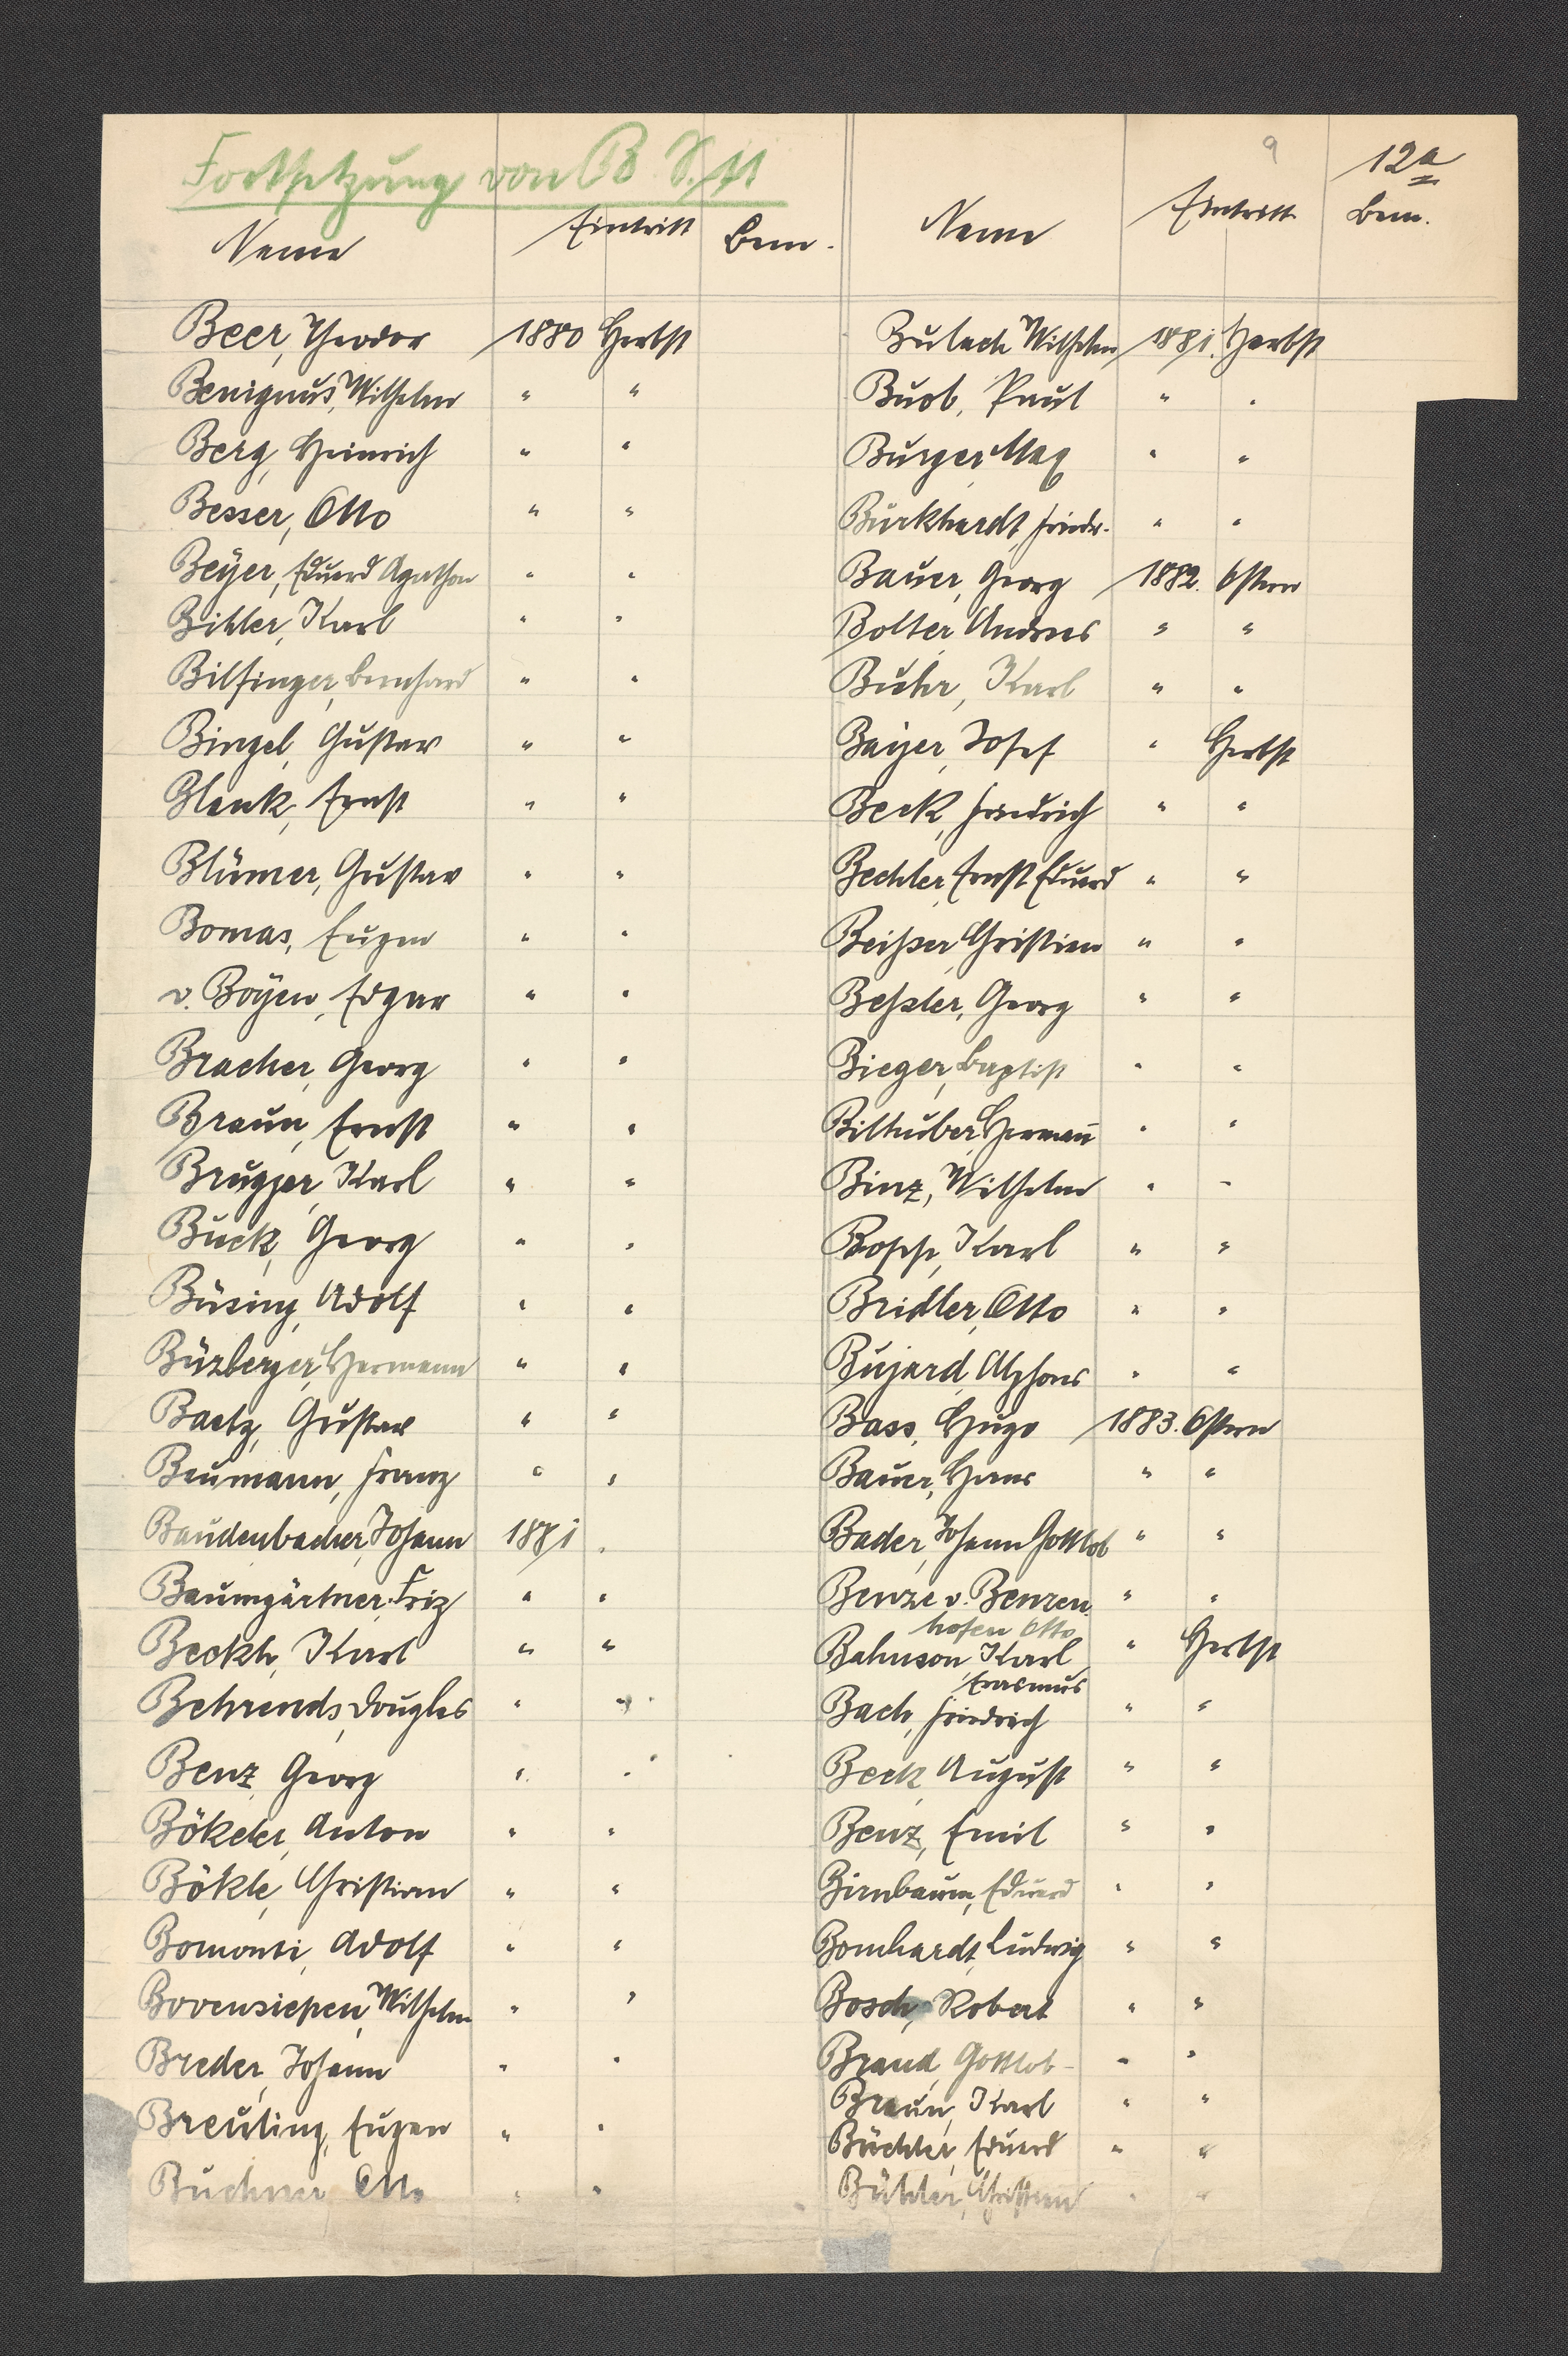 Fortsetzung von B S. 11
9
12a
Name Eintritt Bem.
Beer, Theodor 1880 Herbst
Benignus, Wilhelm " "
Berg, Heinrich " "
Besser, Otto " "
Beyer, Eduard Agathon " "
Bihler, Karl " "
Bilfinger, Bernhard " "
Bingel, Gustav " "
Blenk, Ernst " "
Blümer, Gustav " "
Bomas, Eugen " "
v. Boyen, Edgar " "
Bracher, Georg " "
Braun, Ernst " "
Brugger, Karl " "
Buck, Georg " "
Büsing, Adolf " "
Bürzberger, Hermann " "
Baetz, Gustav " "
Baumann, Franz " "
Baudenbacher, Johann 1881 "
Baumgärtner, Friz " "
Beckh, Karl " "
Behrends, Douglas " "
Benz, Georg " "
Bökeler, Anton " "
Bökle, Christian " "
Bomonti, Adolf " "
Bovensiepen, Wilhelm " "
Breder, Johann " "
Breuling, Eugen " "
Buchner Otto " "
Name Eintritt Bem.
Bulach Wilhelm 1881. Herbst
Buob, Paul " "
Burger Max " "
Burkhardt, Friedr. " "
Bauer, Georg 1882. Ostern
Bolter Andreas " "
Buhr, Karl " "
Bayer, Josef " Herbst
Beck, Friedrich " "
Bechler, Ernst Eduard " "
Beißer Christian " "
Beßler, Georg " "
Bieger, Baptist " "
Bilhuber, Hermann " "
Binz, Wilhelm " "
Bopp, Karl " "
Bridler, Otto " "
Bujard, Alphons " "
Bass, Hugo 1883. Ostern
Bauer, Hans " "
Bader, Johann Gottlob " "
Benze v. Benzen " "
hofen Otto
Bahnson Karl " Herbst
Erasmus
Bach, Friedrich " "
Beck August " "
Benz, Emil " "
Birnbaum, Eduard " "
Bomhardt, Ludwig " "
Bosch, Robert " "
Brand, Gottlob " "
Braun, Karl " "
Büchler, Eduard " "
Bühler, Christian " "